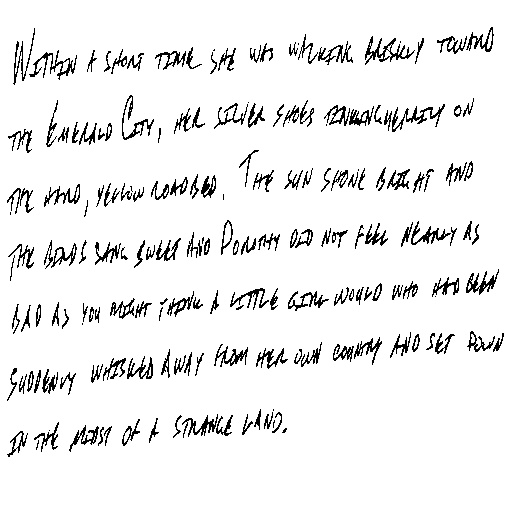 Within a short time she was walking briskly toward
the Emerald City, her silver shoes tinkling merrily on
the hard, yellow roadbed. The sun shone bright and
the birds sang sweet and Dorothy did not feel nearly as
bad as you might think a little girl would who had been
suddenly whisked away from her own country and set down
in the midst of a strange land.